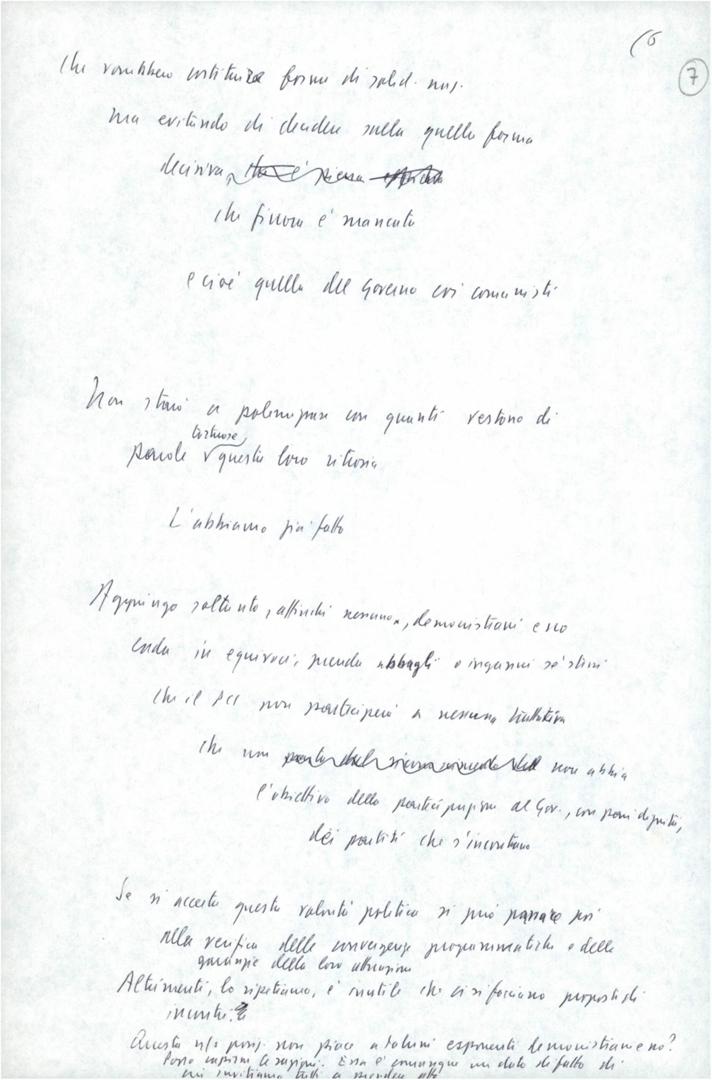 16
7
che vorrebbero costituire forme di solid. naz.
ma evitando di decidere sulla quella forma
decisiva, che è
che finora è mancata
e cioè quella del Governo coi comunisti
Non starò a polemizzare con quanti vestono di
tortuose
parole questa loro ritrosia
L'abbiamo già fatto
Aggiungo soltanto, affinché nessuno, democristiani e no
cada in equivoci, prenda abbagli o inganni sé stesso
che il PCI non parteciperà a nessuna trattativa
che non non abbia
l'obiettivo della partecipazione al Gov., con pari dignità,
dei partiti che s'incontrano
Se si accetta questa volontà politica si può passare poi
alla verifica delle convergenze programmatiche e delle
garanzie della loro attuazione
Altrimenti, lo ripetiamo, è inutile che ci si facciano proposte di
incontri.
Questa ns/ posiz. non piace a taluni esponenti democristiani e no?
Posso capirne le ragioni. Essa è comunque un dato di fatto di
cui invitiamo tutti a prendere atto